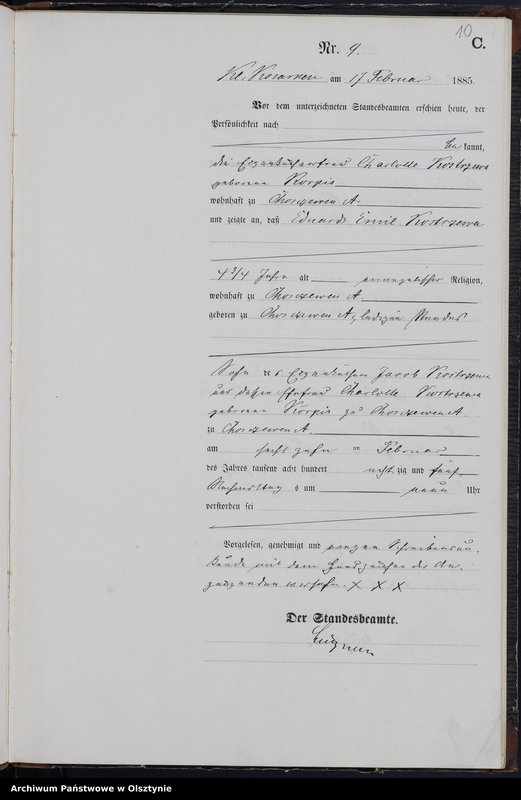 10
C.
Nr. 9.
Kl. Kosarken am 17 Februar 1885.
Vor dem unterzeichneten Standesbeamten erschien heute, der
Persönlichkeit nach
be kannt,
die Eigenkäthnerfrau Charlotte Kostrzewa
geborene Korpis
wohnhaft zu Choszewen A.
und zeigte an, daß Eduard Emil Kostrzewa
4 3/4 Jahre alt evangelischer Religion,
wohnhaft zu Choszewen A.
geboren zu Choszewen A, ledigen Standes
Sohn des Eigenkäthner Jacob Kostrzewa
und dessen Ehefrau Charlotte Kostrzewa
geborene Korpis zu Choszewen A.
zu Choszewen A.
am sechszehn ten Februar
des Jahres tausend acht hundert acht zig und fünf
Nachmittag s um neun Uhr
verstorben sei
Vorgelesen, genehmigt und wegen Schreibensun-
kunde mit dem Handzeichen der An-
zeigenden versehen. X X X
Der Standesbeamte.
Archiwum Państwowe w Olsztynie